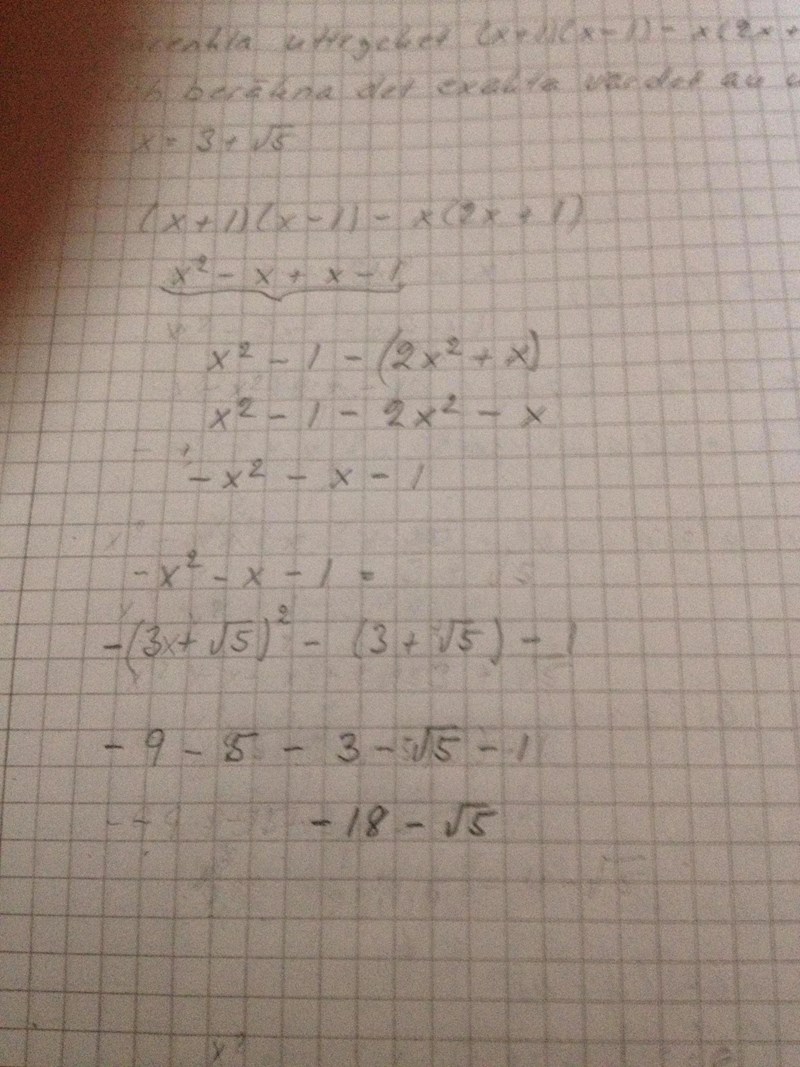 uttrycket (x+1)(x-1) - x(2x +
beräkna det exakta värdet av
x = 3 + √5
(x+1)(x-1) - x(2x + 1)
x² - x + x - 1
x² - 1 - (2x² + x)
x² - 1 - 2x² - x
-x² - x - 1
-x² - x - 1 =
-(3x+ √5)² - (3 + √5) - 1
- 9 - 5 - 3 - √5 - 1
-18 - √5
x²